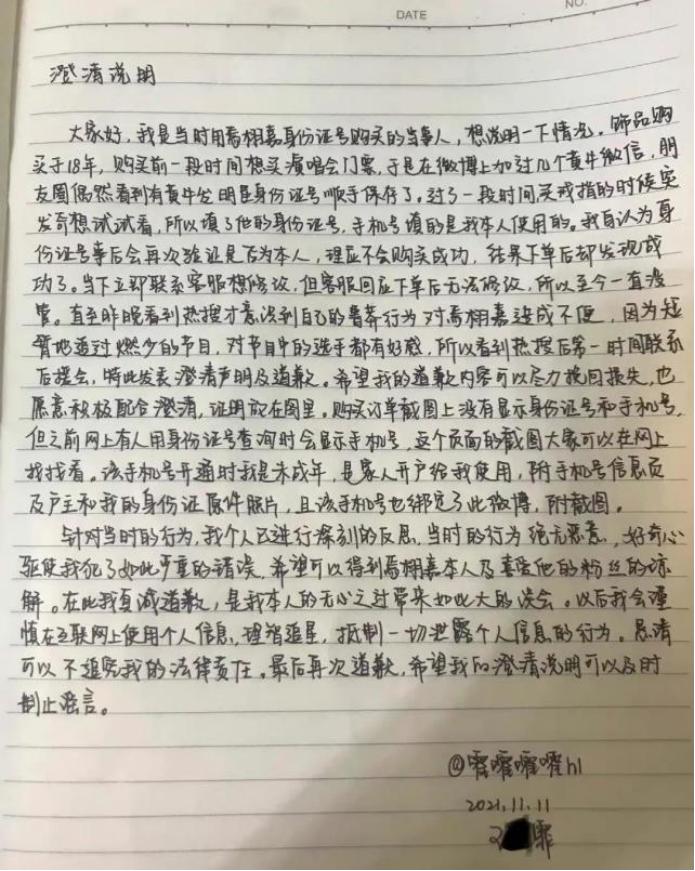 DATE
NO.
澄清说明
大家好，我是当时用焉栩嘉身份证号购买的当事人，想说明一下情况。饰品购
买于18年，购买前一段时间想买演唱会门票，于是在微博上加过几个黄牛微信，朋
友圈偶然看到有黄牛发明星身份证号顺手保存了。过了一段时间，买戒指的时候突
发奇想试试看，所以填了他的身份证号，手机号填的是我本人使用的。我自认为身
份证号事后会再次验证是否为本人，理应不会购买成功，结果下单后却发现成
功了。当下立即联系客服想修改，但客服回应下单后无法修改，所以至今一直没
管。直至昨晚看到热搜才意识到自己的鲁莽行为对焉栩嘉造成不便，因为短
暂地追过燃少的节目，对节目中的选手都有好感，所以看到热搜后第一时间联系
后援会，特此发表澄清声明及道歉。希望我的道歉内容可以尽力挽回损失，也
愿意积极配合澄清，证明放在图里。购买订单截图上没有显示身份证号和手机号，
但之前网上有人用身份证号查询时会显示手机号，这个页面的截图大家可以在网上
找找看。该手机号开通时我是未成年，是家人开户给我使用，附手机号信息页
及户主和我的身份证原件照片，且该手机号也绑定了此微博，附截图。
针对当时的行为，我个人已进行深刻的反思，当时的行为绝无恶意，好奇心
驱使我犯了如此严重的错误，希望可以得到焉栩嘉本人及喜爱他的粉丝的谅
解。在此我真诚道歉，是我本人的无心之过带来如此大的误会。以后我会谨
慎在互联网上使用个人信息，理智追星，抵制一切泄露个人信息的行为。恳请
可以不追究我的法律责任。最后再次道歉，希望我的澄清说明可以及时
制止谣言。
hl
2021.11.11